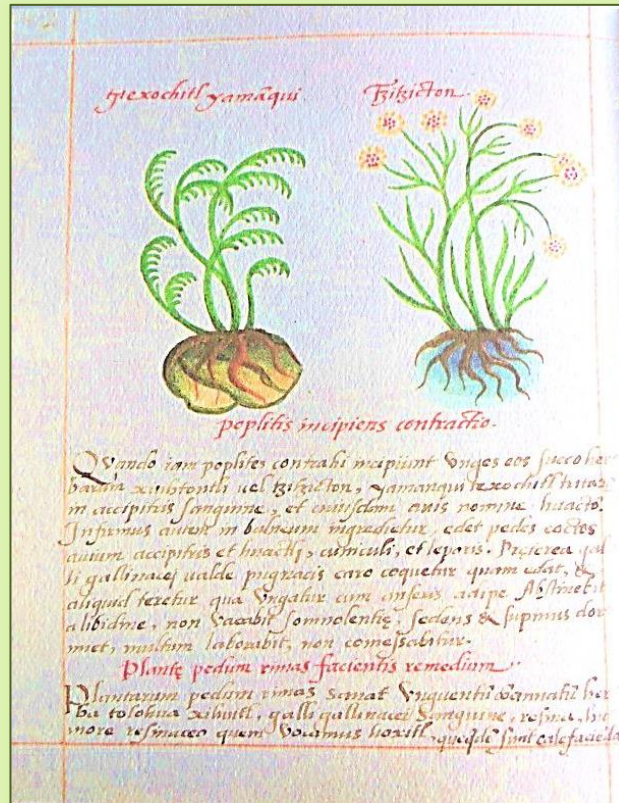 texochitl yamaqui
Tzitzicton
poplitis incipiens contractio.
Quando iam poplites contrahi incipiunt Unges eos succo her
barum xiuhtontli uel tzitzicton, yamanqui texochitl tritar
in accipitris sanguine, et cuiusdam auis nomine huactō.
Infirmus autem in balneum ingredietur, edet pedes coctos
auium accipitris et huactli, cuniculi, et leporis. Preterea gal
li gallinacei ualde pugnacis caro coquetur quam edat, &
aliquid teretur qua Ungatur cum anseris adipe. Abstinebit
a libidine, non Vacabit somnolentię, sedens & supinus dor
miet, multum laborabit, non comessabitur.
Plantę pedum rimas facientis remedium
Plantarum pedum rimas sanat Unguentū her
ba tolohua xihuitl, galli gallinacei sanguine, resina, hu
more resinaceo quem Vocamus hoxitl, queqde sunt calefacieda